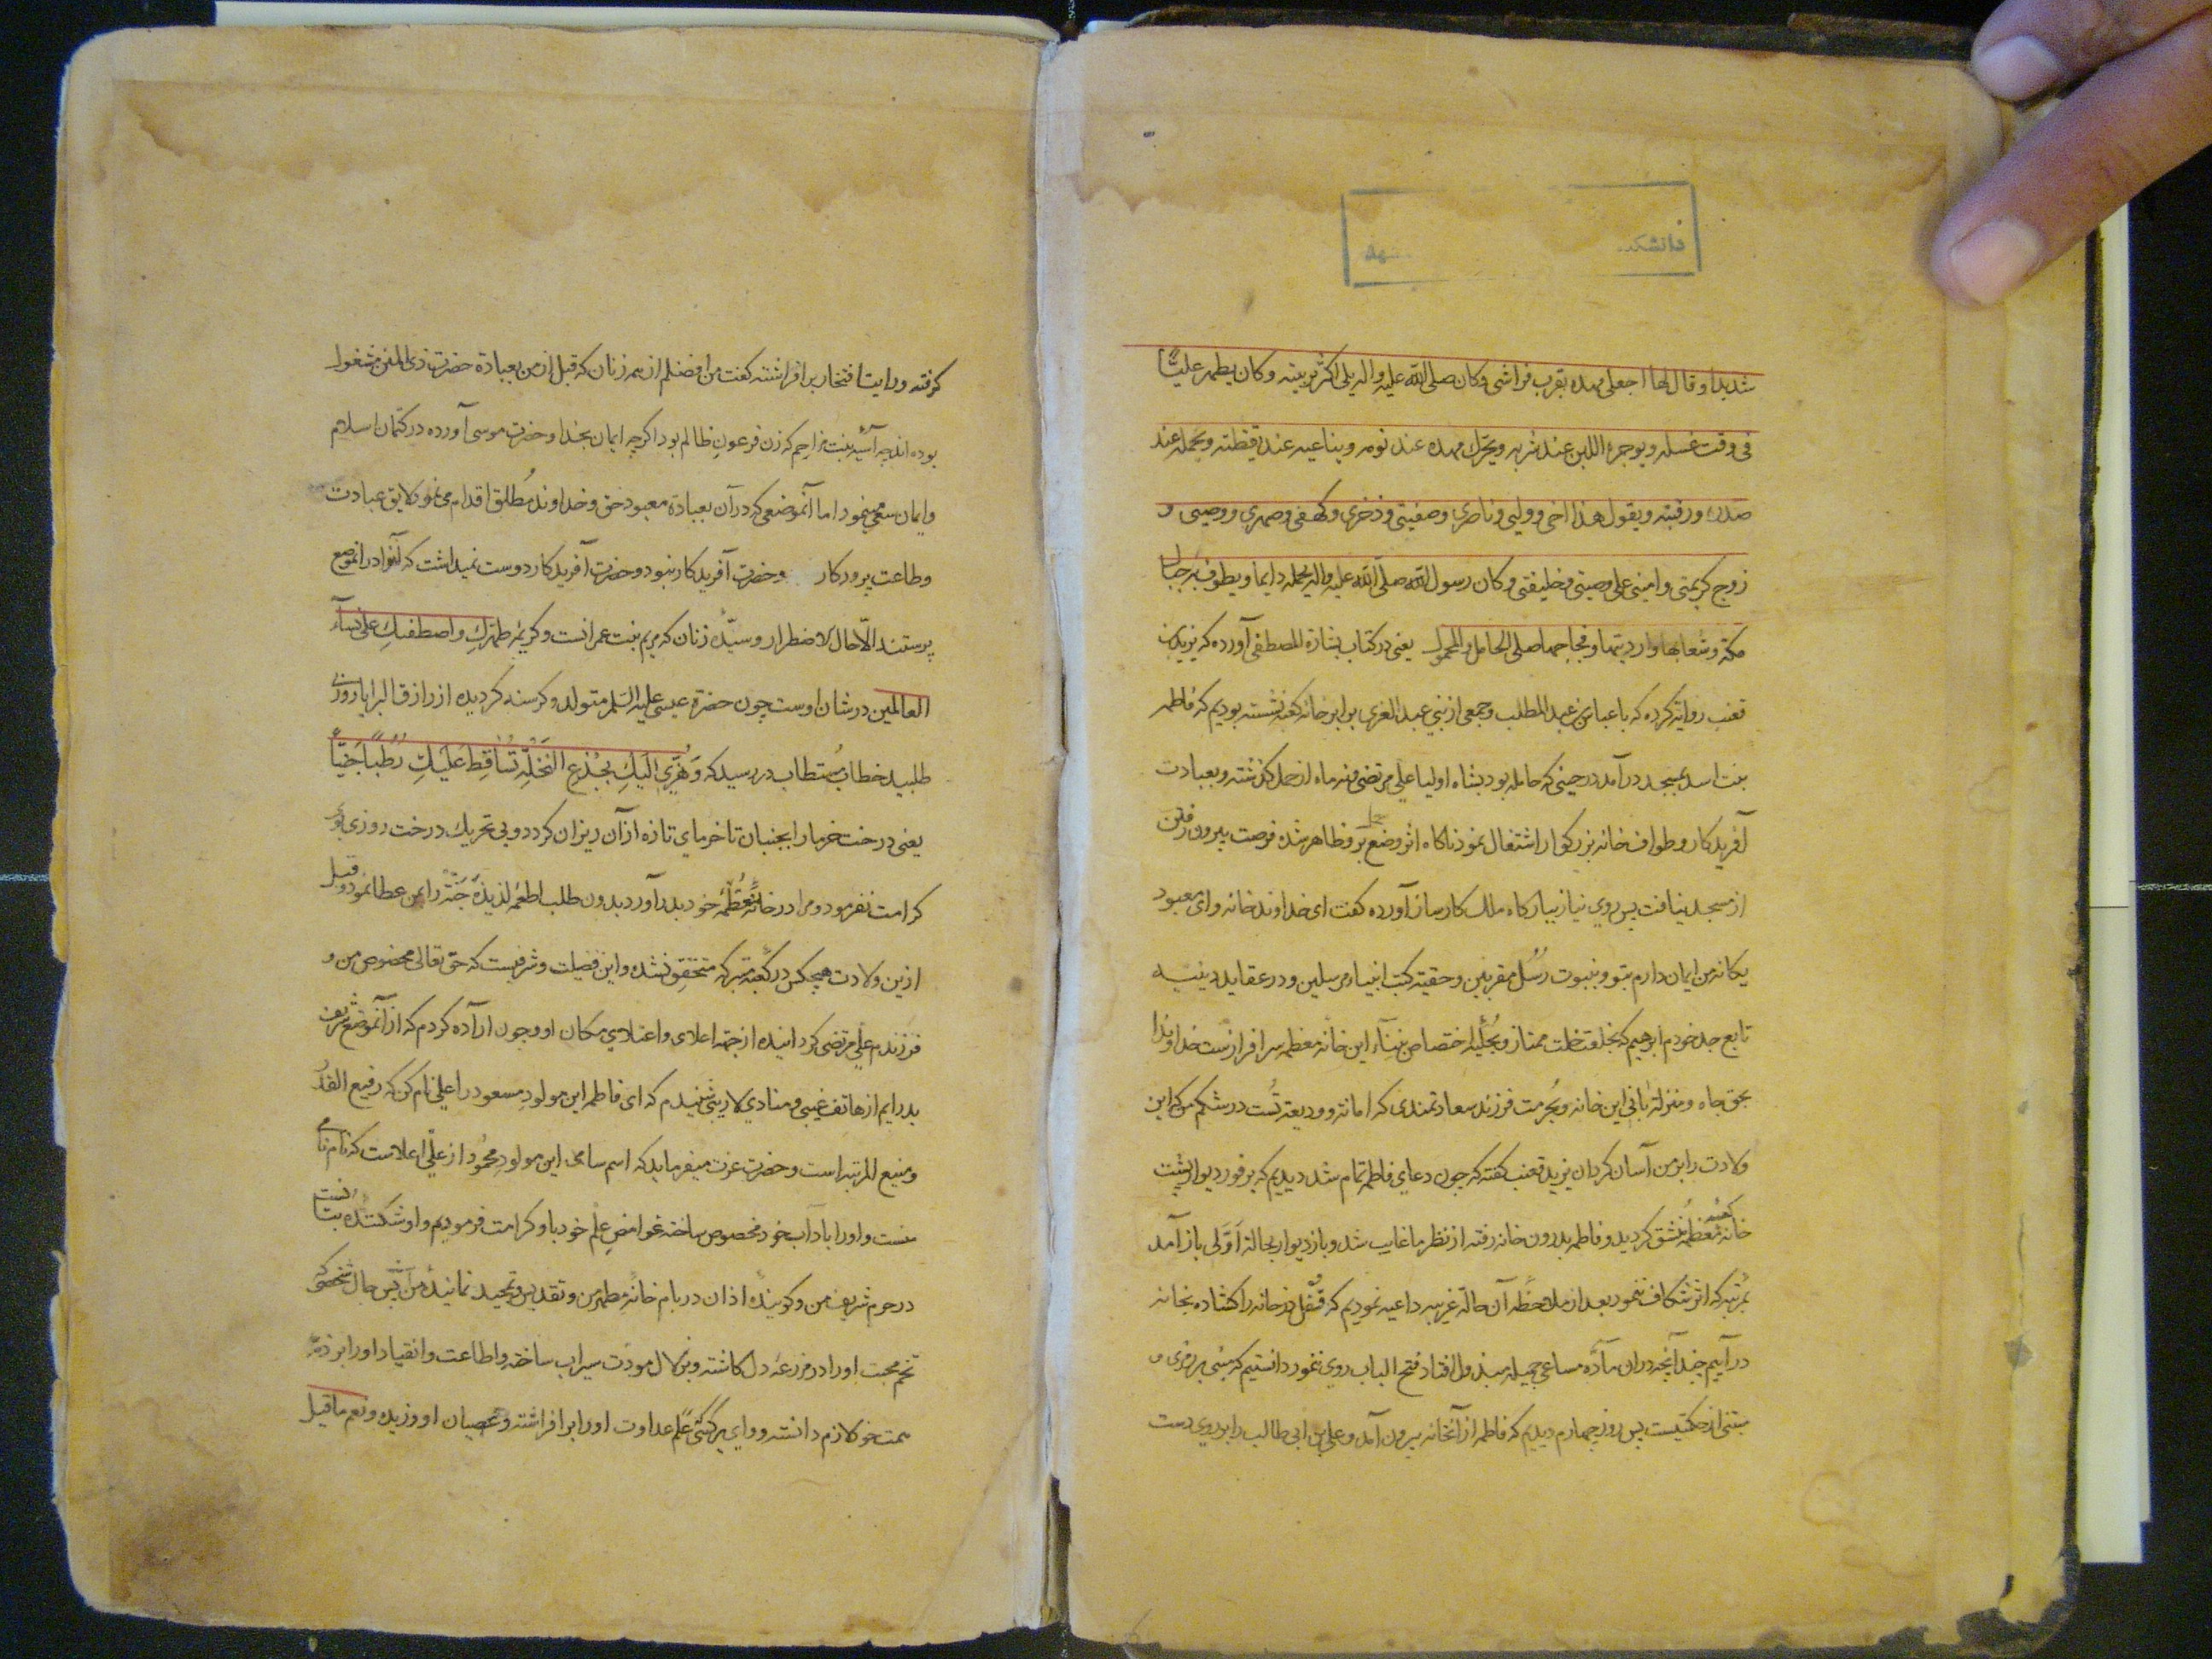 دانشکده
شدیدا و قال لها اجعلی مهده بقرب فراشی و کان صلی الله علیه و اله یلی اکثر تربیته و کان یطهر علیّاً
فی وقت غسله و یوجره اللبن عند شربه و یحرّک مهده عند نومه و یناغیه عند یقظته و یحمله عند
صدره و رقبته و یقول هذا اخی و ولیی و ناصری و صفیتی و ذخری و کهفی و صهری و وصیی و
زوج کریمتی و امینی علی وصیتی و خلیفتی و کان رسول الله صلی الله علیه و اله یحمله دایما و یطوف به جبال
مکة و شعابها و اردیتها و فجاجها صلی الحامل و المحمول یعنی در کتاب بشارة المصطفی آورده که یزید بن
قعنب روایة کرده که با عباس بن عبد المطلب و جمعی از بنی عبد العزی برابر خانه کعبه نشسته بودیم که فاطمه
بنت اسد بمسجد درآمد در حینی که حامله بود بشاه اولیا علی مرتضی و نه ماه از حمل گذشته و بعبادت
آفریدکار و طواف خانه بزرکوار اشتغال نمود ناکاه اثر وضع حمل بر و ظاهر شده فرصت بیرون رفتن
از مسجد نیافت پس روی نیاز ببارکاه ملک کارساز آورده کفت ای خداوند خانه و ای معبود
یکانه من ایمان دارم بتو و بنبوت رُسُل مقربین و حقیة کتب انبیاء مرسلین و در عقاید دینیه
تابع جد خودم ابرهیم که بخلعت خلت ممتاز و بحُلّیه اختصاص بنآء این خانه معظمه سرافرازست خداوندا
بحق جاه و منزلة بانی این خانه و بحُرمت فرزند سعادتمندی که امانة و ودیعة تُست در شکم من که این
ولادت را بر من آسان کردان یزید قعنب کفته که چون دعای فاطمه تمام شد دیدیم که بر فور دیوار پشت
خانه کعبه معظمه مُنشق کردید و فاطمه بدرون خانه رفته از نظر ما غایب شد و باز دیوار بحالة اَوّلی باز آمد
بمُرتبه که اثر شکاف ننمود بعد از ملاحظه آن حالة غریبه داعیه نمودیم که قُفل در خانه را کشاده بخانه
درآییم چندانچه دران مآدّه مساعی جمیله مبذول افتاد فتح الباب روی ننمود دانستیم که مبنی بر رمزی و
مبتنی از حکمتیست پس روز چهارم دیدیم که فاطمه از آنخانه بیرون آمد و علی بن ابی طالب را بر روی دست
کرفته و رایت افتخار برافراشته کفت من افضلم از همه زنان که قبل از من بعبادة حضرت ذی المنن مشغول
بوده اند چه آسیه بنت مزاحم که زن فرعون ظالم بود اکرچه ایمان بخدا و حضرت موسی آورده در کتمان اسلام
و ایمان سعی مینمود اما آنموضعی که در آن بعبادة معبود حق و خداوند مُطلق اقدام می نمود لایق عبادت
و طاعت پرورکار و حضرت آفریدکار نبود و حضرت آفریدکار دوست نمیداشت که آنرا در آنموضع
پرستند الّا حال الاضطرار و سیّده زنان که مریم بنت عمرانست و کریمه طهرّکِ و اصطفیکِ علی نسآء
العالمین در شان اوست چون حضرة عیسی علیه السلم متولد و کرسنه کردیده از رازق البرایا روزی
طلبید خطاب مُستطاب در رسید که وَهُزّی الَیکِ بجِذعِ النّخلَةِ تُساقِط عَلَیکِ رُطَباً جَنِیّاً
یعنی درخت خرما را بجنبان تا خرمای تازه از آن ریزان کردد و بی تحریک درخت روزی بو
کرامت نفرمود و مرا در خانه مُعظّمه خود بدر آورد بدون طلب اطعمه لذیذهَ جَنّةّ را بمن عطا نمود و قبل
ازین ولادت هیچکس در کعبه متبرکه متحقق نشده و این فضیلت و شرفیست که حق تعالی مخصوص من و
فرزندم علی مرتضی کردانیده از جهة اعلای و اعتلای مکان او و چون اراده کردم که از آنموضع شریف
بدر آیم از هاتف غیبی و منادی لاریبی شنیدم که ای فاطمه این مولود مسعود را علی نام کن که رفیع القدر
و منیع المرتبه است و حضرت عزت میفرماید که اسم سامی این مولودِ محمُود از علی اعلاست که نام نامی
منست و او را باداب خود مخصوص ساخته غوامض علم خود باو کرامت فرمودیم و او شکننده بتانست
در حرم شریف من و کوینده اذان در بام خانه مطهر من و تقدیس و تمجید نماینده من پس خوشا حال شخصی که
تخم محبت او را در مزرعه دل کاشته و بزلال مودّت سیراب ساخته و اطاعت و انقیاد او را بر ذمّه
همت خود لازم دانسته و وای بر کسی که عَلَم عداوت او را برافراشته و عصیان او ورزیده و نعم ما قیل